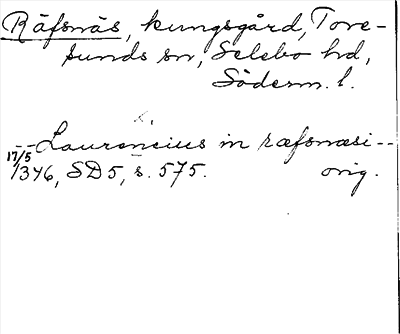 Räfsnäs, kungsgård, Tore-
sunds sn, Selebo hd,
Söderm. l.
--Laurencius in ræfsnæsi--
17/5
1346, SD 5, s. 575. orig.